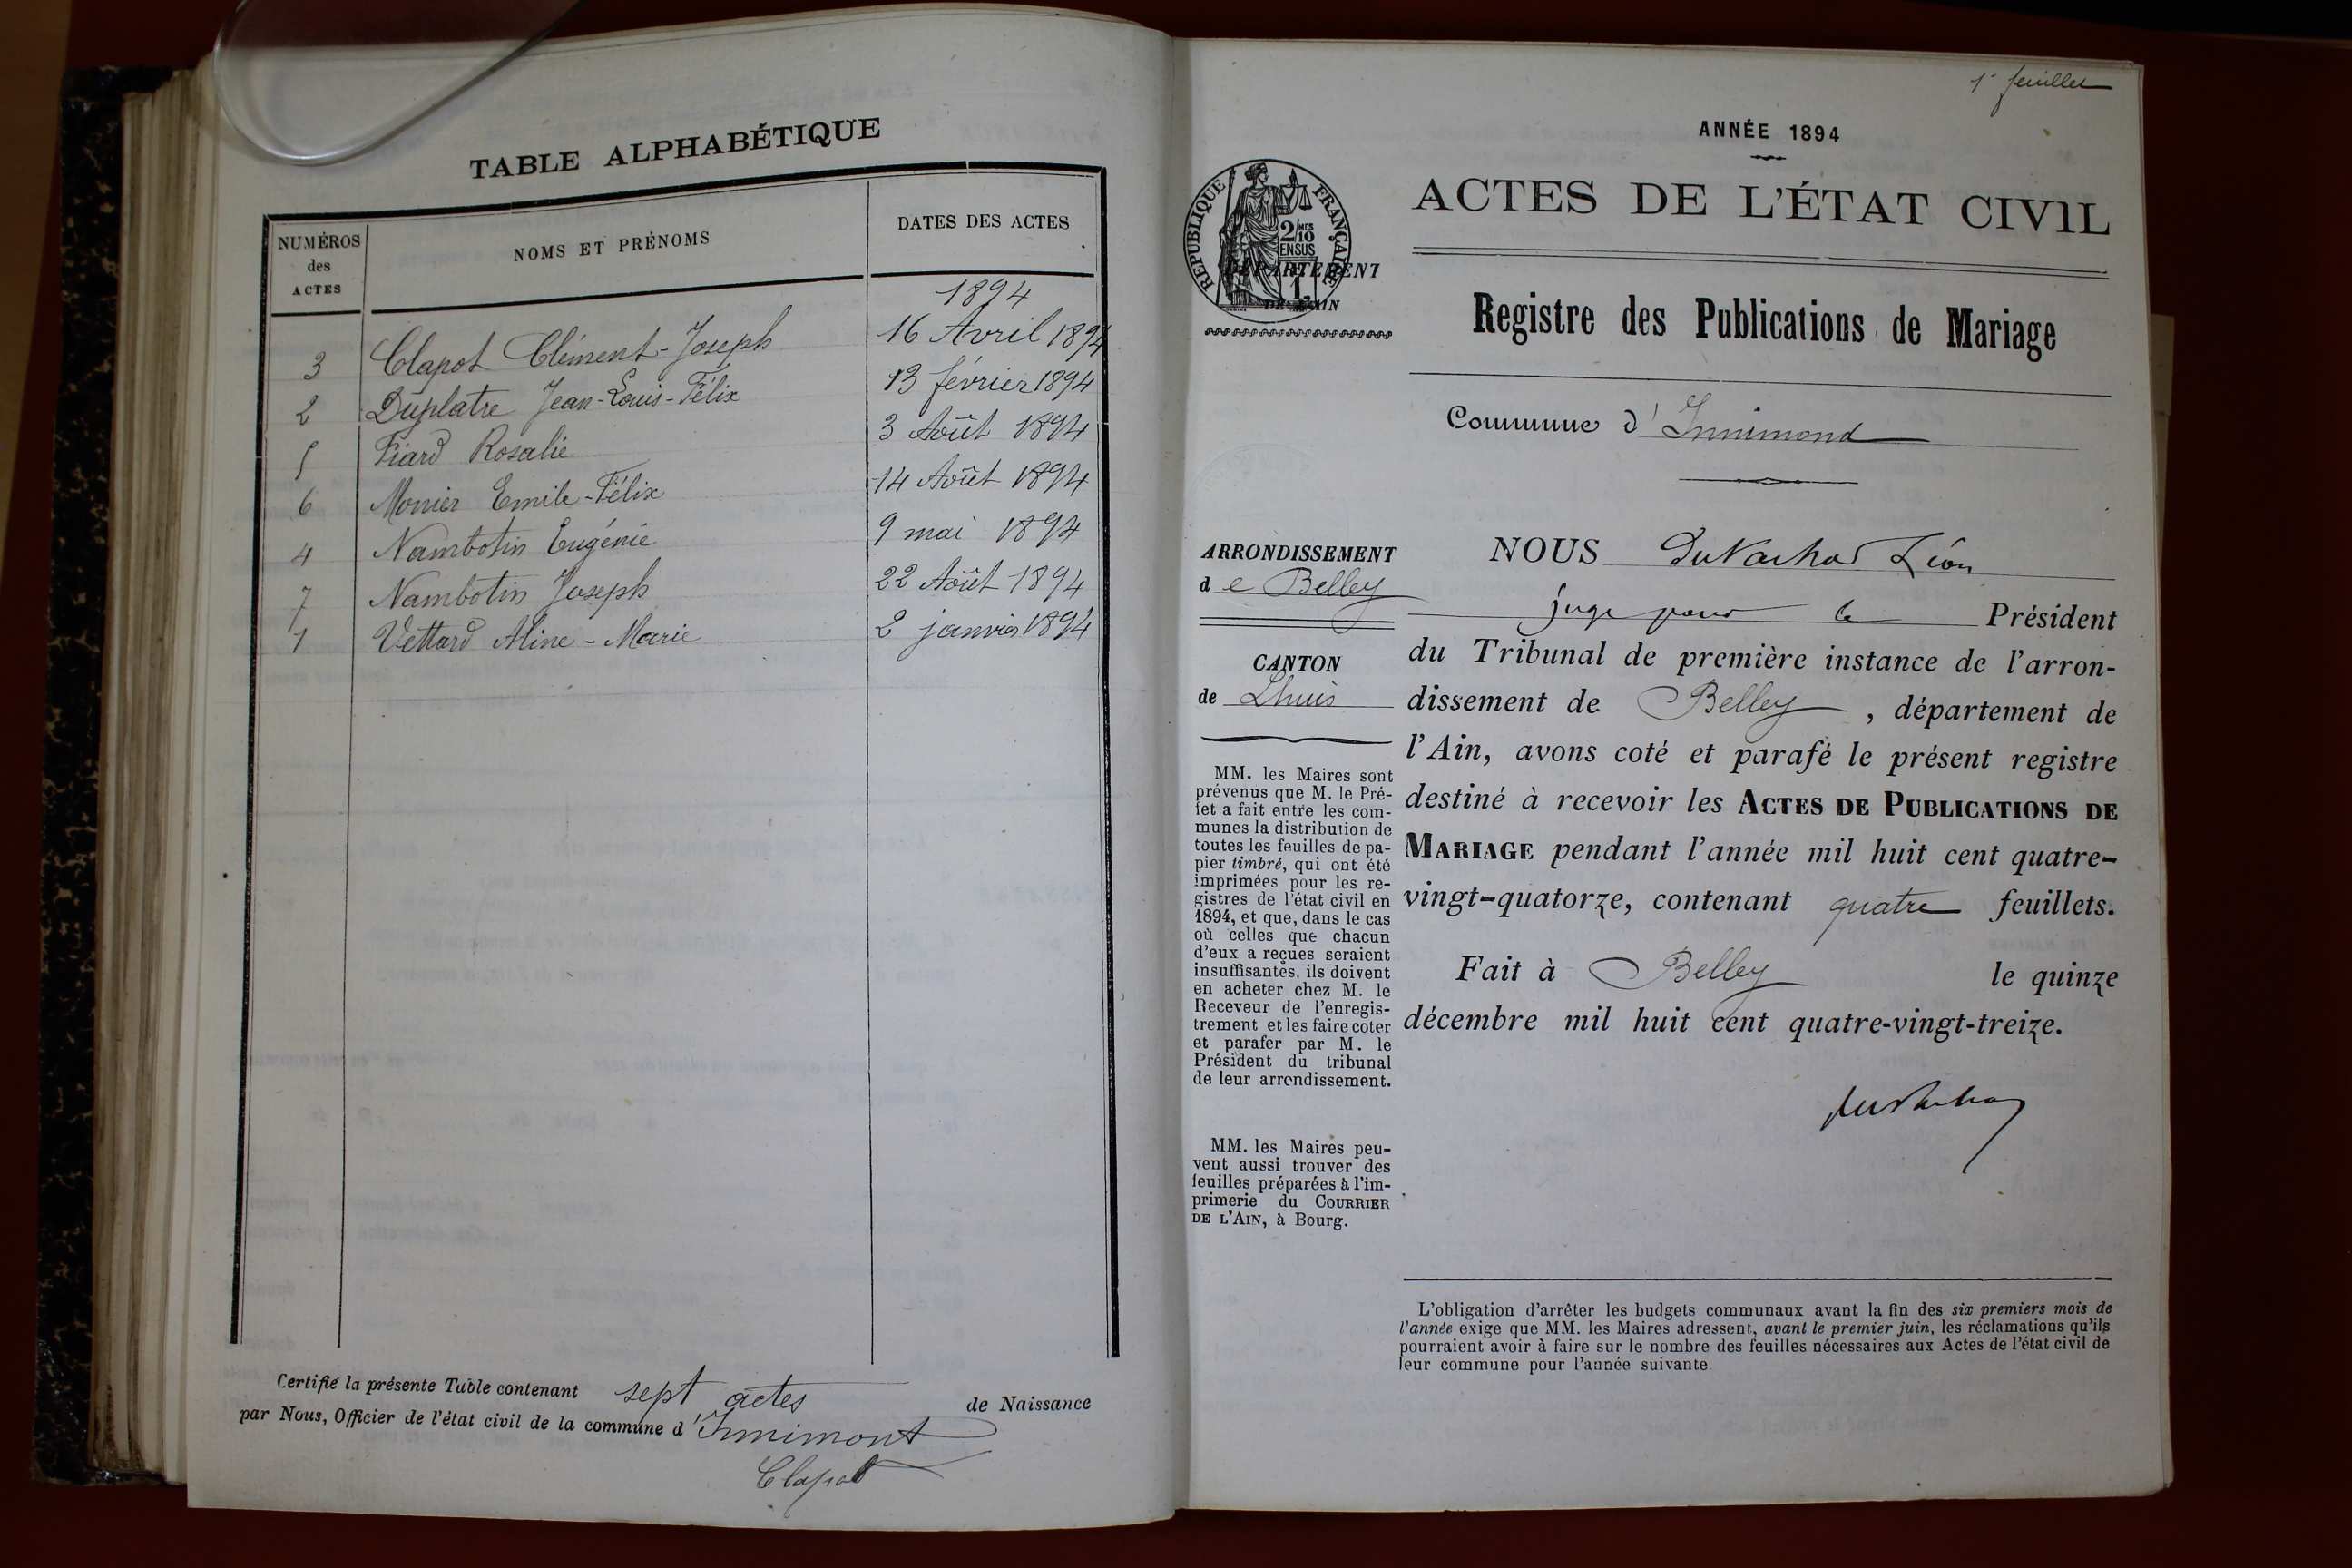 TABLE ALPHABÉTIQUE
NUMÉROS des ACTES
NOMS ET PRÉNOMS
DATES DES ACTES
1894
3 Clapot Clément-Joseph 16 Avril 1894
2 Duplatre Jean-Louis-Félix 13 février 1894
5 Fiard Rosalie 3 Août 1894
6 Monier Emile-Félix 14 Août 1894
4 Nambotin Eugénie 9 mai 1894
7 Nambotin Joseph 22 Août 1894
1 Vettard Aline-Marie 2 janvier 1894
Certifié la présente Table contenant sept actes de Naissance
par Nous, Officier de l'état civil de la commune d'Innimont
Clapot
1er feuillet
ANNÉE 1894
ACTES DE L'ÉTAT CIVIL
RÉPUBLIQUE FRANÇAISE
2/10 MES
EN SUS
DÉPARTEMENT
DE L'AIN
Registre des Publications de Mariage
Commune d'Innimond
ARRONDISSEMENT
de Belley
CANTON
de Lhuis
MM. les Maires sont
prévenus que M. le Pré-
fet a fait entre les com-
munes la distribution de
toutes les feuilles de pa-
pier timbré, qui ont été
imprimées pour les re-
gistres de l'état civil en
1894, et que, dans le cas
où celles que chacun
d'eux a reçues seraient
insuffisantes, ils doivent
en acheter chez M. le
Receveur de l'enregis-
trement et les faire coter
et parafer par M. le
Président du tribunal
de leur arrondissement.
MM. les Maires peu-
vent aussi trouver des
feuilles préparées à l'im-
primerie du COURRIER
DE L'AIN, à Bourg.
NOUS Léon
juge pour le Président
du Tribunal de première instance de l'arron-
dissement de Belley, département de
l'Ain, avons coté et parafé le présent registre
destiné à recevoir les ACTES DE PUBLICATIONS DE
MARIAGE pendant l'année mil huit cent quatre-
vingt-quatorze, contenant quatre feuillets.
Fait à Belley le quinze
décembre mil huit cent quatre-vingt-treize.
L'obligation d'arrêter les budgets communaux avant la fin des six premiers mois de
l'année exige que MM. les Maires adressent, avant le premier juin, les réclamations qu'ils
pourraient avoir à faire sur le nombre des feuilles nécessaires aux Actes de l'état civil de
leur commune pour l'année suivante.